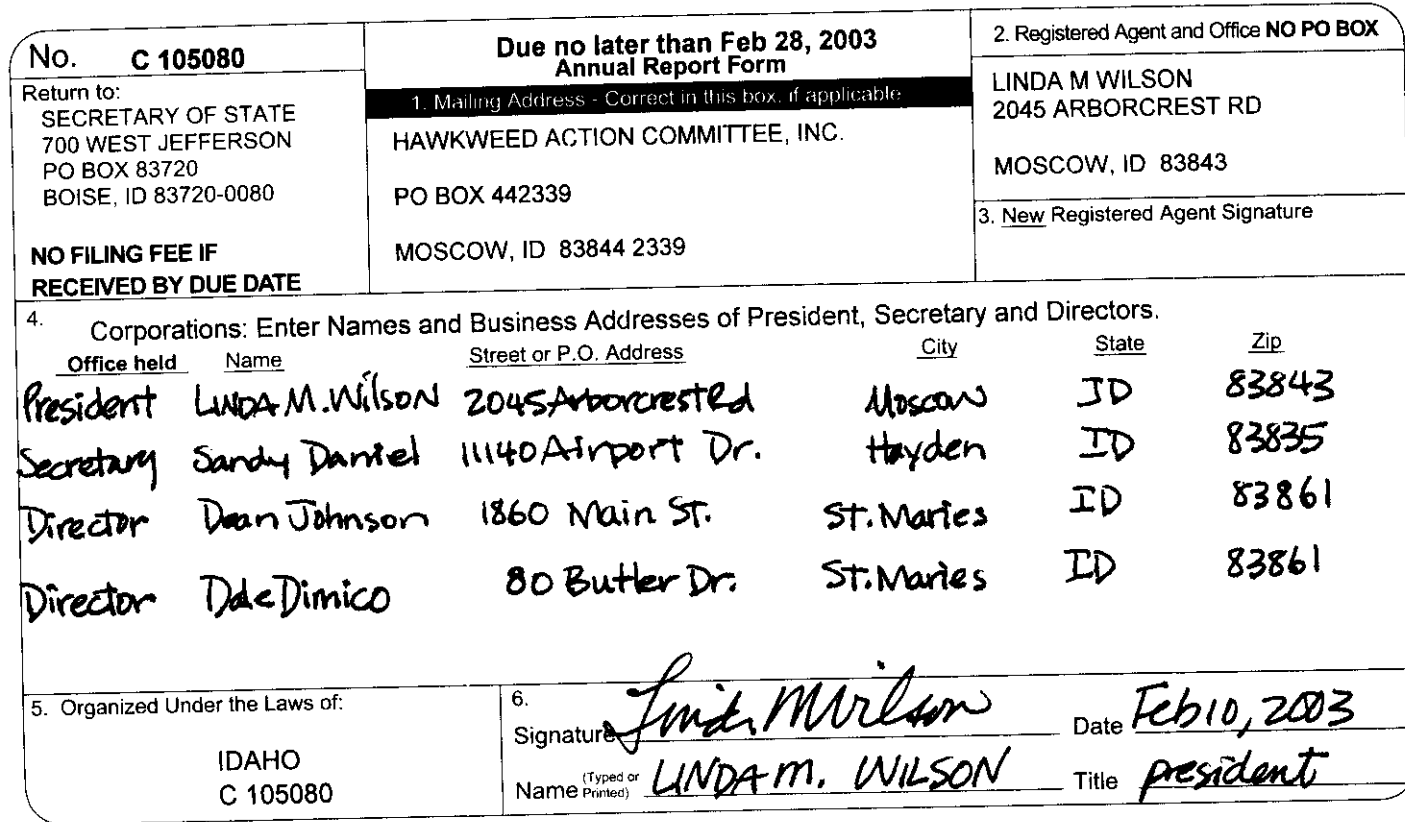 No. C 105080
Return to:
SECRETARY OF STATE
700 WEST JEFFERSON
PO BOX 83720
BOISE, ID 83720-0080
NO FILING FEE IF
RECEIVED BY DUE DATE
Due no later than Feb 28, 2003
Annual Report Form
1. Mailing Address - Correct in this box, if applicable
HAWKWEED ACTION COMMITTEE, INC.
PO BOX 442339
MOSCOW, ID 83844 2339
2. Registered Agent and Office NO PO BOX
LINDA M WILSON
2045 ARBORCREST RD
MOSCOW, ID 83843
3. New Registered Agent Signature
4. Corporations: Enter Names and Business Addresses of President, Secretary and Directors.
Office held Name Street or P.O. Address City State Zip
President LINDA M. Wilson 2045 Arborcrest Rd Moscow ID 83843
Secretary Sandy Daniel 11140 Airport Dr. Hayden ID 83835
Director Dean Johnson 1860 Main St. St. Maries ID 83861
Director Dale Dimico 80 Butler Dr. St. Maries ID 83861
5. Organized Under the Laws of:
IDAHO
C 105080
6.
Signature Linda M Wilson Date Feb 10, 2003
Name (Typed or Printed) LINDA M. WILSON Title president